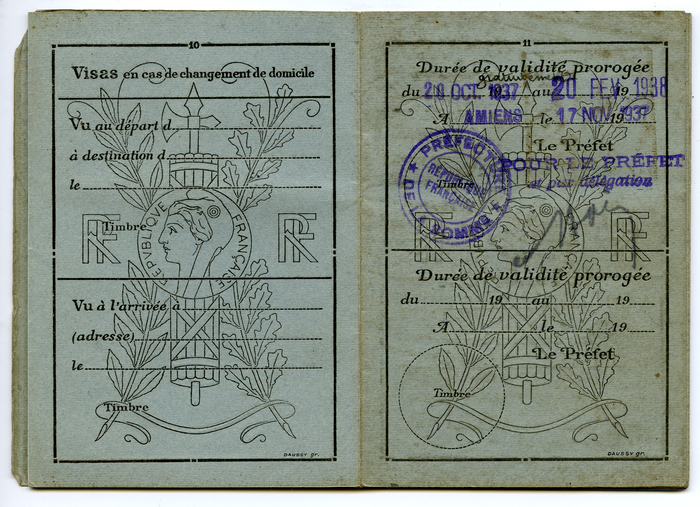 10
Visas en cas de changement de domicile
Vu au départ d
à destination d
le
RF
Timbre
RÉPUBLIQUE FRANÇAISE
RF
Vu à l'arrivée à
(adresse)
le
Timbre
DAUSSY gr.
11
Durée de validité prorogée
gratuitement
du 20 OCT. 1937 au 20 FEV. 1938
A AMIENS le 17 NOV. 1937
Le Préfet
POUR LE PRÉFET
et par délégation
PRÉFECTURE DE LA SOMME
RÉPUBLIQUE FRANÇAISE
Timbre
RF
Durée de validité prorogée
du 19 au 19
A le 19
Le Préfet
Timbre
DAUSSY gr.